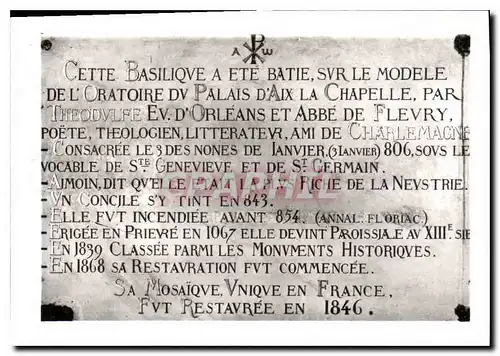 A ☧ ω
CETTE BASILIQVE A ETÉ BATIE, SVR LE MODELE
DE L'ORATOIRE DV PALAIS D'AIX LA CHAPELLE, PAR
THEODVLFE EV. D'ORLÉANS ET ABBÉ DE FLEVRY,
POËTE, THEOLOGIEN, LITTERATEVR, AMI DE CHARLEMAGNE
- CONSACRÉE LE 3 DES NONES DE JANVIER, (3 JANVIER) 806, SOVS LE
VOCABLE DE STE GENEVIEVE ET DE ST GERMAIN.
- AIMOIN, DIT QV'ELLE ETAIT LA PLVS RICHE DE LA NEVSTRIE.
- VN CONCILE S'Y TINT EN 843.
- ELLE FVT INCENDIÉE AVANT 854. (ANNAL. FLORIAC.)
- ERIGÉE EN PRIEVRÉ EN 1067 ELLE DEVINT PAROISSIALE AV XIIIE SIE
- EN 1839 CLASSÉE PARMI LES MONVMENTS HISTORIQVES.
- EN 1868 SA RESTAVRATION FVT COMMENCÉE.
SA MOSAÏQVE, VNIQVE EN FRANCE,
FVT RESTAVRÉE EN 1846.